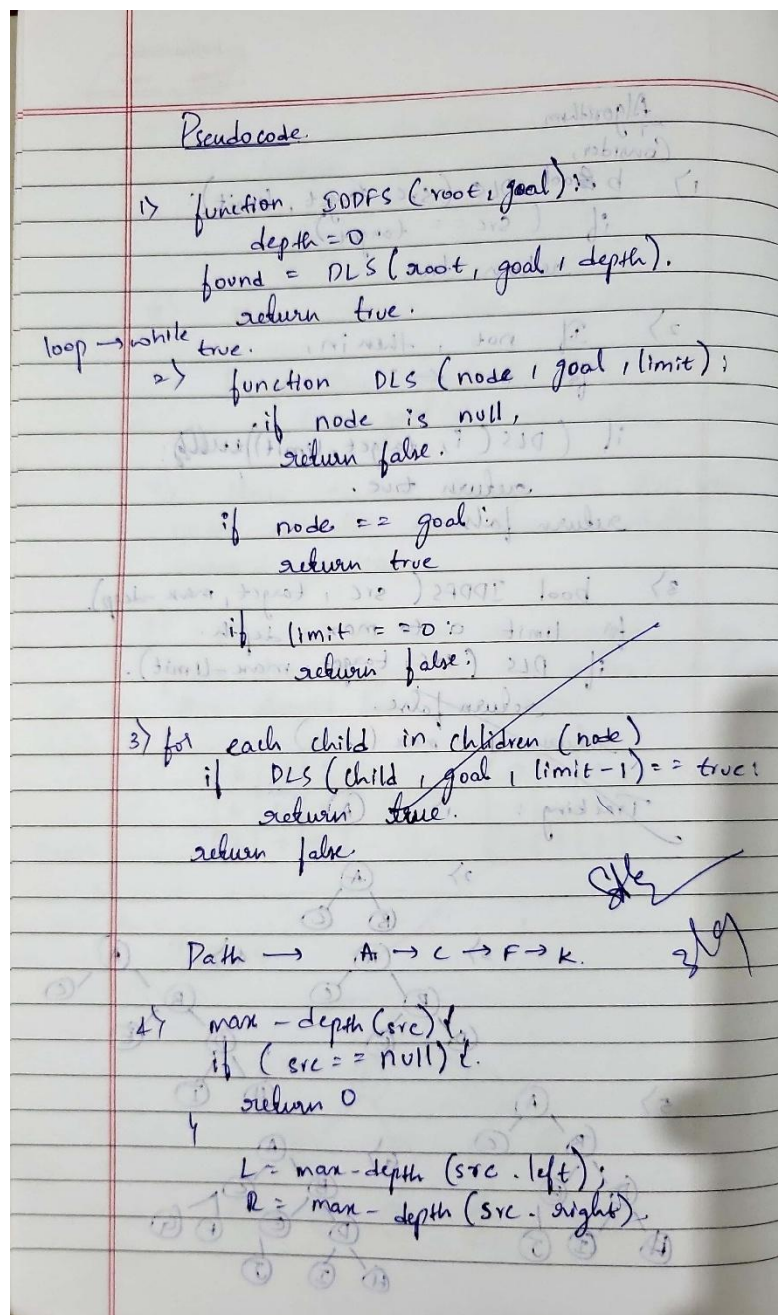 Pseudocode.
1) function IDDFS (root, goal):
depth = 0
found = DLS (root, goal, depth).
return true.
loop → while true.
2) function DLS (node, goal, limit);
if node is null,
return false.
if node == goal:
return true
if limit == 0:
return false;
3) for each child in chlidren (node)
if DLS (child, goal, limit-1) == true:
return true.
return false.
Path → A → C → F → K.
4) max-depth (src) {.
if (src == null) {.
return 0
}
L = max-depth (src.left);
R = max-depth (src.right).